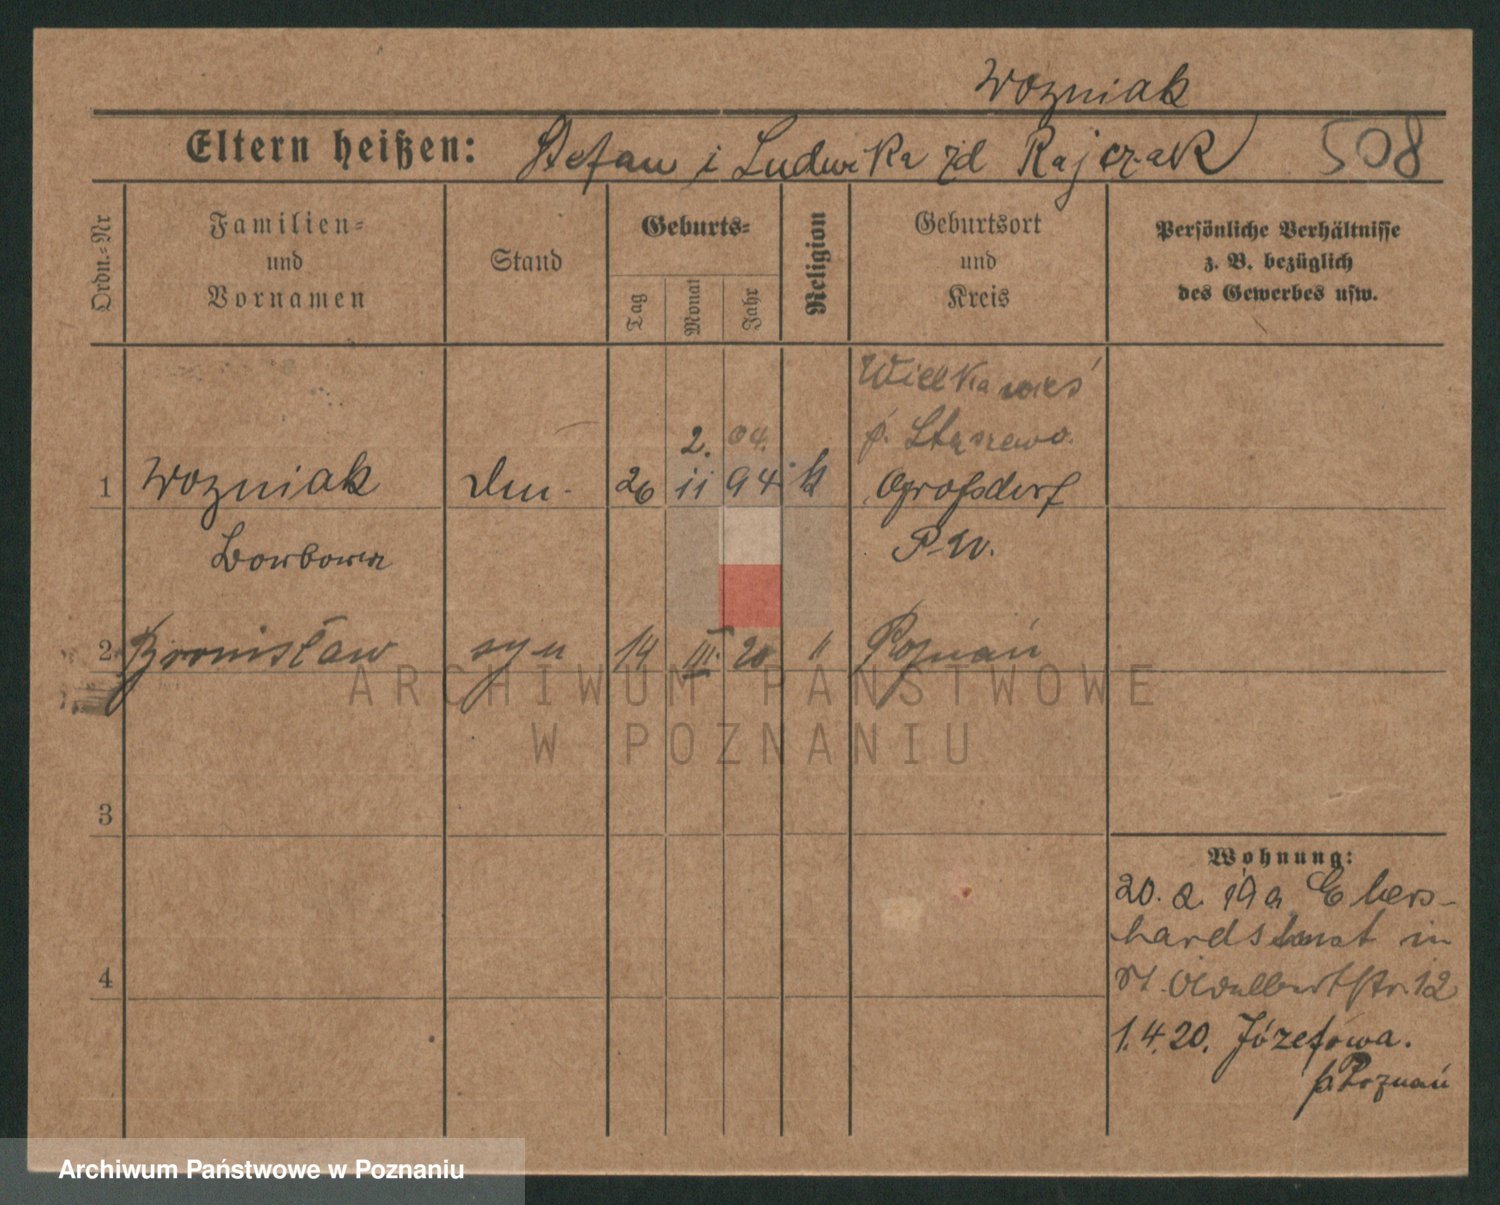 Wozniak
Eltern heißen: Stefan i Ludwika zd Rajczak 508
Ordn.=Nr
Familien=
und
Vornamen
Stand
Geburts=
Tag
Monat
Jahr
Religion
Geburtsort
und
Kreis
Persönliche Verhältnisse
z. B. bezüglich
des Gewerbes usw.
Wielka wieś
p.
2. 04.
1 Wozniak 26 11 94 k Grofsdorf
P-W.
2 Bronisław syn 14 III. 20 " Poznań
3
4
Wohnung:
20. 2. 19 a Ebers-
hardstraat in
St. Adalbertstr. 12
1.4.20. Józefowa.
p. Poznań
ARCHIWUM PAŃSTWOWE
W POZNANIU
Archiwum Państwowe w Poznaniu